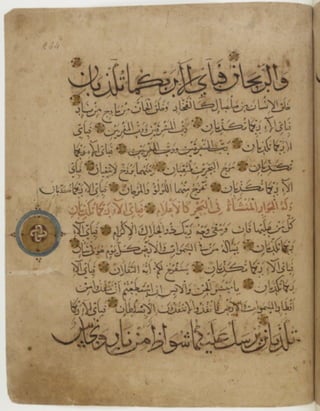 والريحان فبأي آلاء ربكما تكذبان
خلق الإنسان من صلصال كالفخار وخلق الجان من مارج من نار
فبأي آلاء ربكما تكذبان رب المشرقين ورب المغربين فبأي
آلاء ربكما تكذبان رب المشرقين ورب المغربين فبأي آلاء ربكما
تكذبان مرج البحرين يلتقيان بينهما برزخ لا يبغيان فبأي
آلاء ربكما تكذبان يخرج منهما اللؤلؤ والمرجان فبأي آلاء ربكما تكذبان
وله الجوار المنشآت في البحر كالأعلام فبأي آلاء ربكما تكذبان
كل من عليها فان ويبقى وجه ربك ذو الجلال والإكرام فبأي آلاء
ربكما تكذبان يسأله من في السموات والأرض كل يوم هو في شأن
فبأي آلاء ربكما تكذبان سنفرغ لكم أيه الثقلان فبأي آلاء
ربكما تكذبان يا معشر الجن والإنس إن استطعتم أن تنفذوا من
أقطار السموات والأرض فانفذوا لا تنفذون إلا بسلطان فبأي آلاء ربكما
تكذبان يرسل عليكما شواظ من نار ونحاس